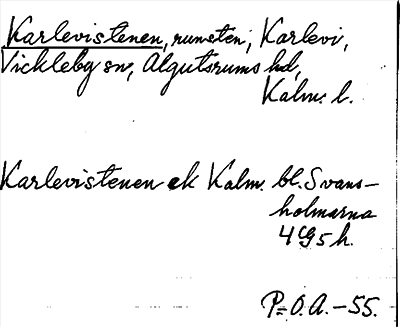 Karlevistenen, runsten, Karlevi,
Vickleby sn, Algutsrums hd,
Kalm. l.
Karlevistenen ek Kalm. bl. Svans-
holmarna
4G5h.
P=O.A. -55.